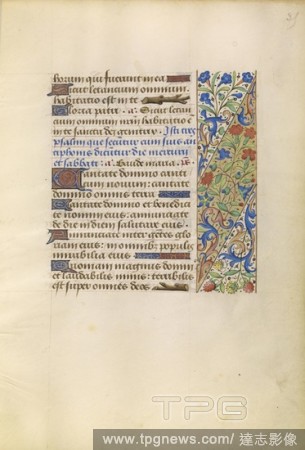 31
horum qui futurunt in ea
Sicut letancium omnium
habitatio est in te
Gloria patri. a. Sicut letan
cium omnium nrm habitatio e
in te sancta dei genitrix. Isti tres
psalmi qui secuntur cum suis an
tiphonis dicuntur die mercurii
et sabbati. a. Gaude maria. ps.
Cantate domino canti
cum novum: cantate
domino omnis terra
Cantate domino et benedicite
nomini eius: annunciate
de die in diem salutare eius.
Annunciate inter gentes glo
riam eius: in omnibus populis
mirabilia eius.
Quoniam magnus dominus
et laudabilis nimis: terribilis
est super omnes deos
TPG
www.tpgnews.com / 達志影像